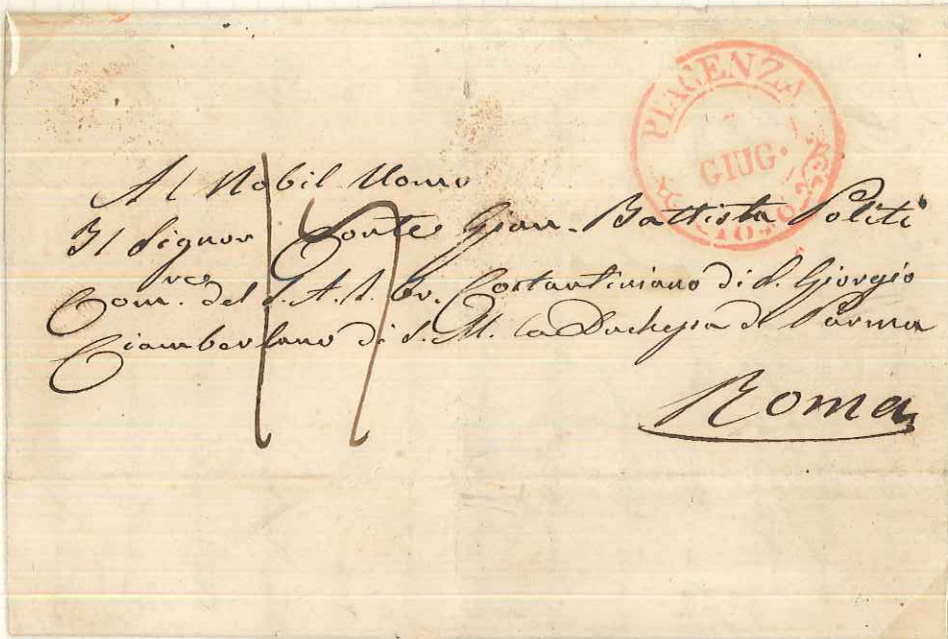 PIACENZA
GIUG.
Al Nobil Uomo
Il Signor Conte Gian. Battista Politi
Com.re del S. A. I. Or. Costantiniano di S. Giorgio
Ciamberlano di S. M. la Duchessa di Parma
Roma
17